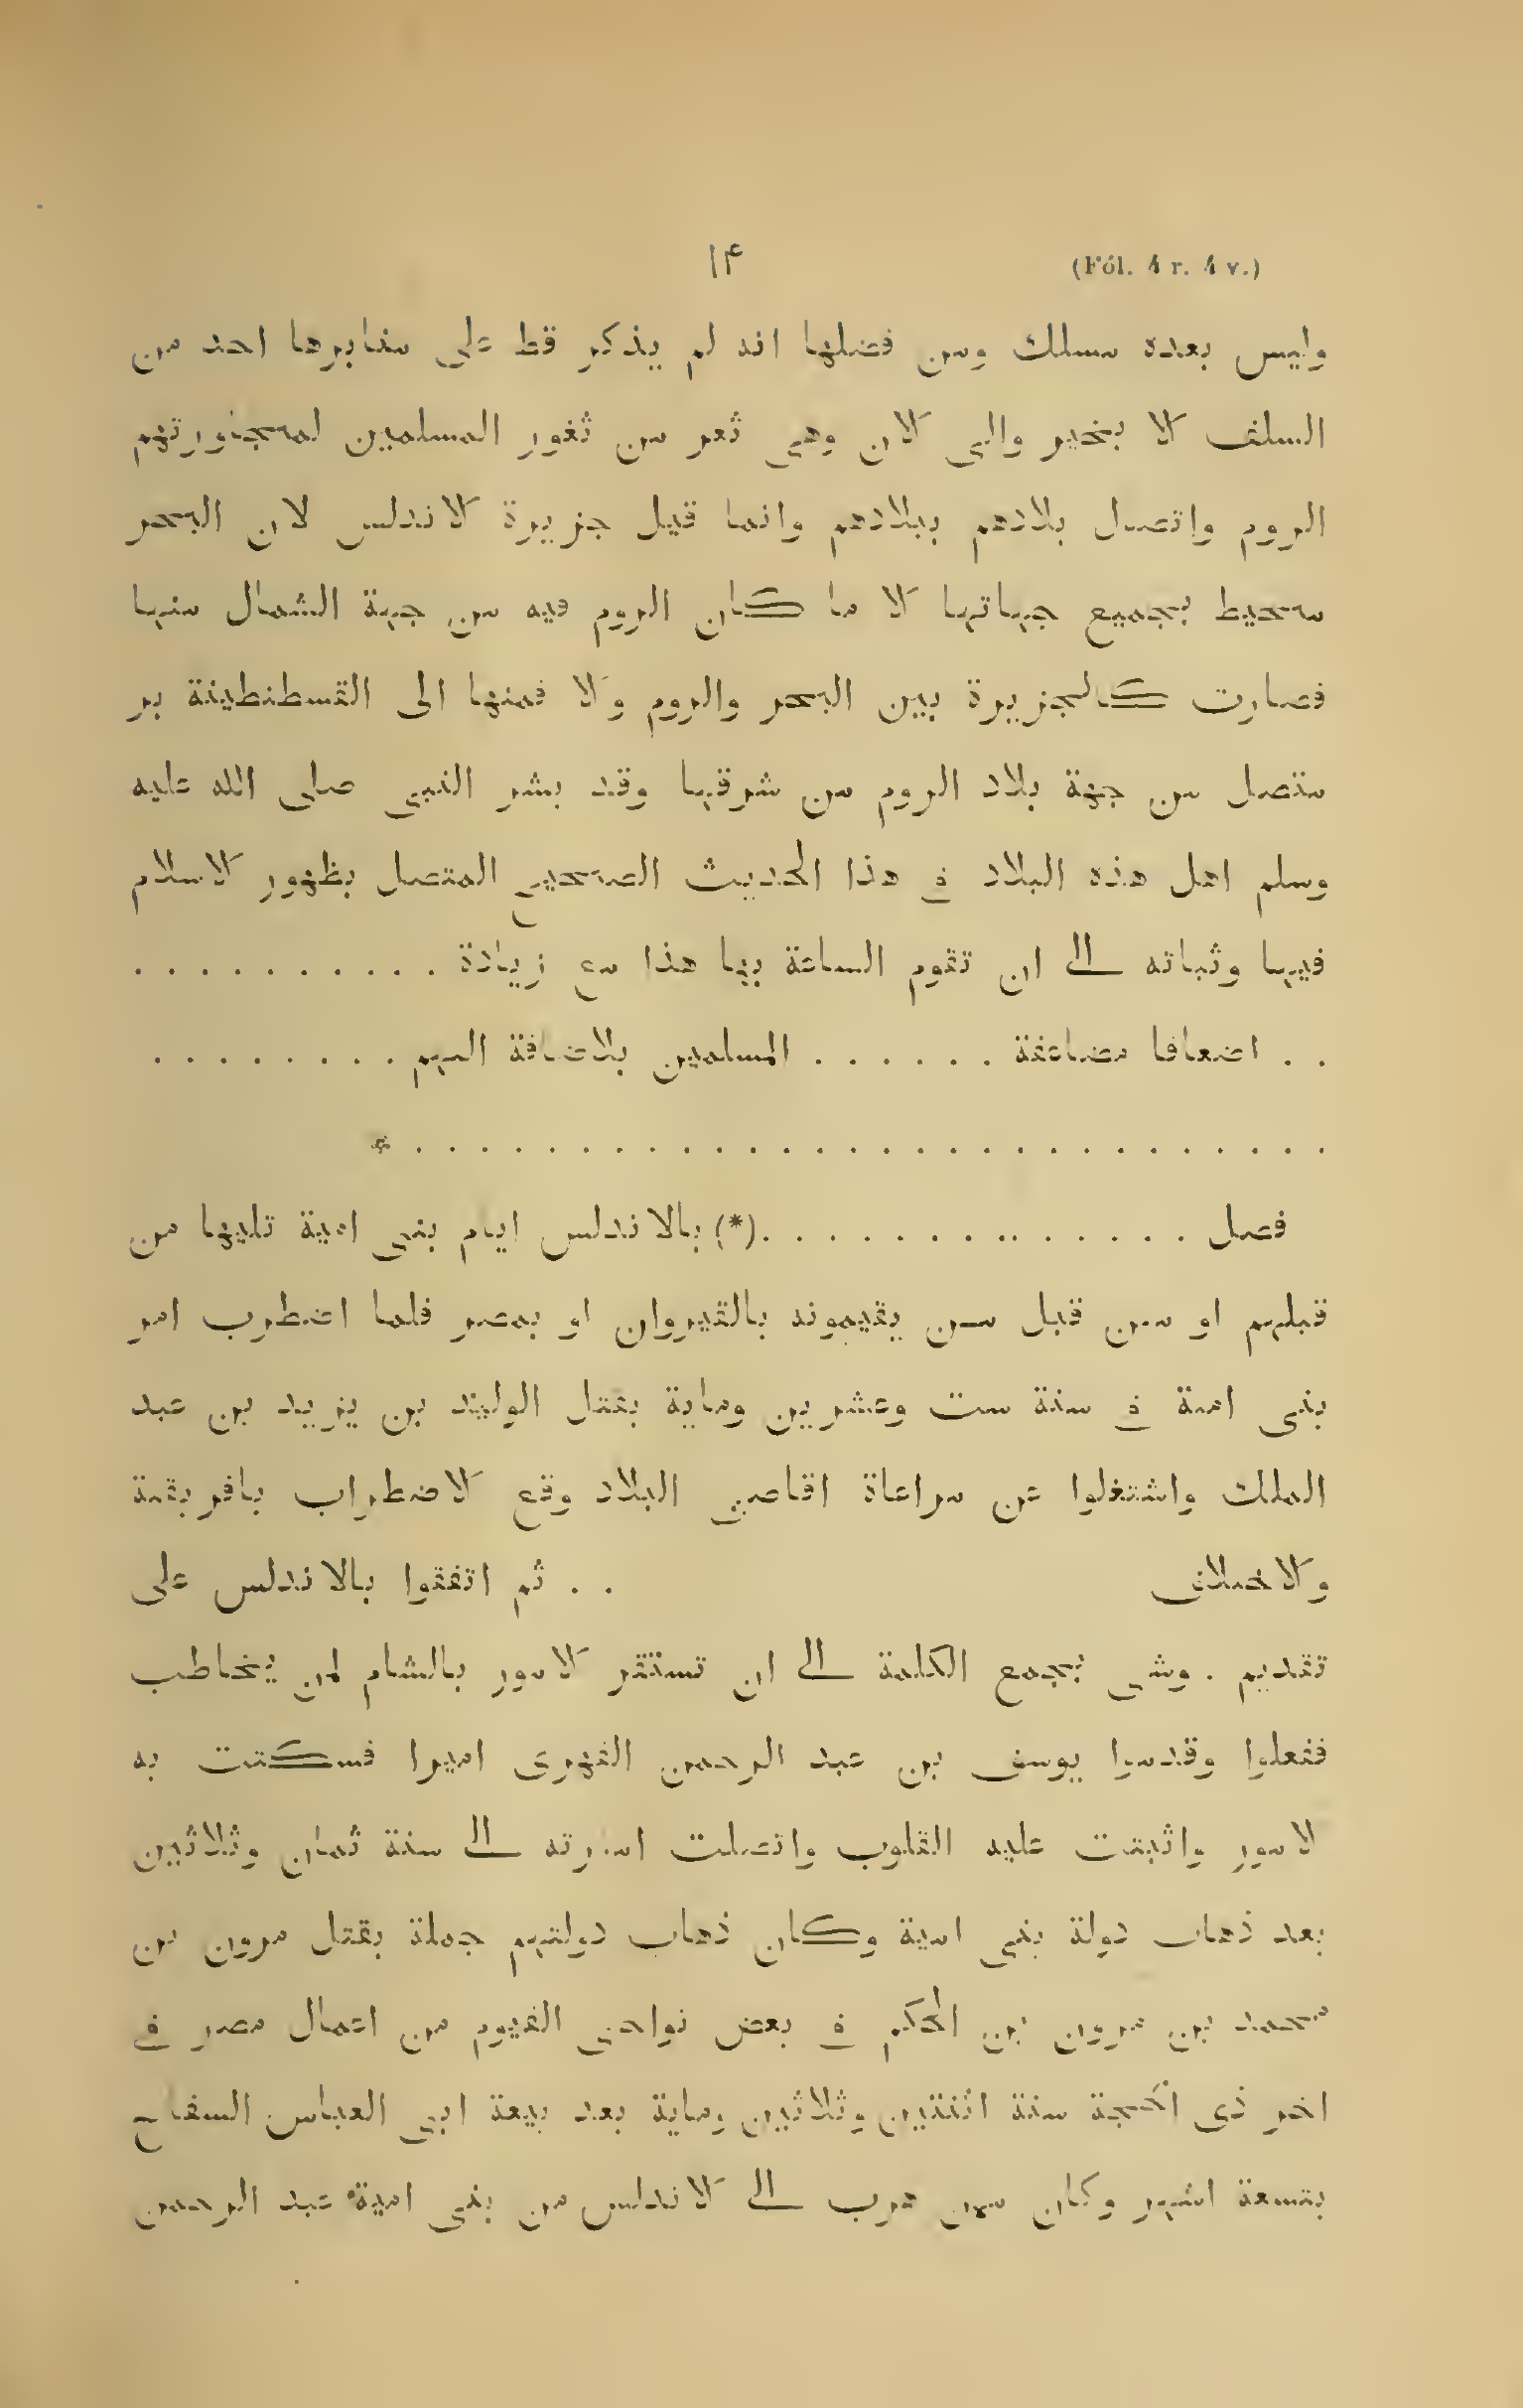 (Fól. 4 r. 4 v.) ١٣
وليس بعده مسلك ومن فضلها انه لم يذكر قط على منابرها احد من
السلف الا بخير والى الان وهى ثغر من ثغور المسلمين لمجاورتهم
الروم واتصال بلادهم ببلادهم وانما قيل جزيرة الاندلس لان البحر
محيط بجميع جهاتها الا ما كان الروم فيه من جهة الشمال منها
فصارت كالجزيرة بين البحر والروم والا فمنها الى القسطنطينة بر
متصل من جهة بلاد الروم من شرقها وقد بشر النبى صلى الله عليه
وسلم اهل هذه البلاد فى هذا الحديث الصحيح المتصل بظهور الاسلام
فيها وثباته الى ان تقوم الساعة بها هذا مع زيادة . . . . . . . . . .
. . اضعافا مضاعفة . . . . . . المسلمين بلاضافة اليهم . . . . . . . .
. . . . . . . . . . . . . . . . . . . . . . . . . . . . *
فصل . . . . . . . . . . . . . .(*) بالاندلس ايام بنى امية تليها من
قبلهم او من قبل من يقيمونه بالقيروان او بمصر فلما اضطرب امر
بنى امية فى سنة ست وعشرين وماية بقتل الوليد بن يزيد بن عبد
الملك واشتغلوا عن مراعاة اقاصى البلاد وقع الاضطراب بافريقية
والاختلاف . . ثم اتفقوا بالاندلس على
تقديم . وشى بجمع الكلمة الى ان تستقر الامور بالشام لمن يخاطب
ففعلوا وقدموا يوسف بن عبد الرحمن الفهرى اميرا فسكنت به
لامور واثبتت عليه القلوب واتصلت امارته الى سنة ثمان وثلاثين
بعد ذهاب دولة بنى امية وكان ذهاب دولتهم جملة بقتل مرون بن
محمد بن مرون بن الحكم فى بعض نواحى الفيوم من اعمال مصر فى
اخر ذى الحجة سنة اثنتين وثلاثين وماية بعد بيعة ابى العباس السفاح
بتسعة اشهر وكان ممن هرب الى الاندلس من بنى امية عبد الرحمن